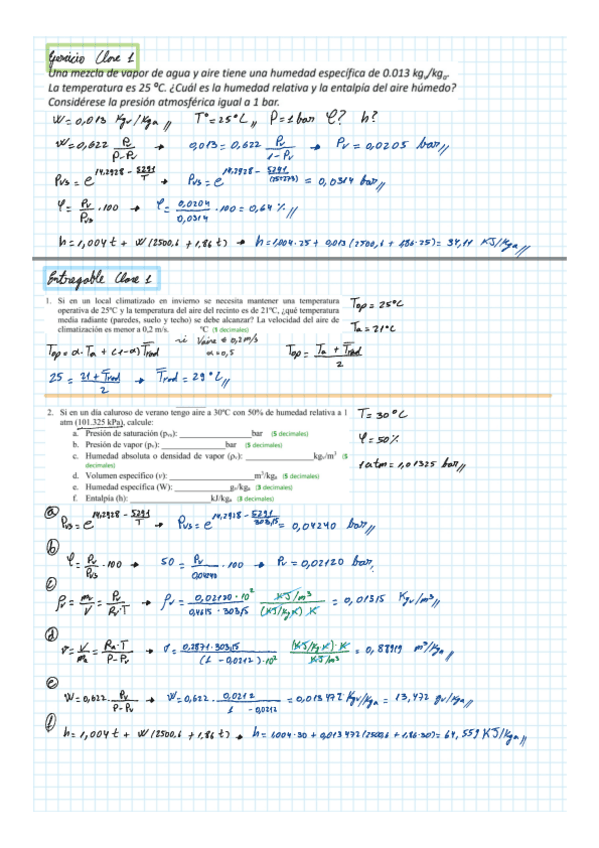 Ejercicio Clase 1
Una mezcla de vapor de agua y aire tiene una humedad específica de 0.013 kgv/kga.
La temperatura es 25 ºC. ¿Cuál es la humedad relativa y la entalpía del aire húmedo?
Considérese la presión atmosférica igual a 1 bar.
W = 0,013 Kgv/Kga // T° = 25°C // P = 1 bar φ? h?
W = 0,622 Pv/(P-Pv) → 0,013 = 0,622 Pv/(1-Pv) → Pv = 0,0205 bar //
Pvs = e^(14,2928 - 5291/T) → Pvs = e^(14,2928 - 5291/(25+273)) = 0,0314 bar //
φ = Pv/Pvs · 100 → φ = 0,0204/0,0314 · 100 = 0,64 % //
h = 1,004 t + W (2500,6 + 1,86 t) → h = 1,004 · 25 + 0,013 (2500,6 + 1,86 · 25) = 34,11 KJ/Kga //
Entregable Clase 1
1. Si en un local climatizado en invierno se necesita mantener una temperatura
operativa de 25ºC y la temperatura del aire del recinto es de 21ºC, ¿qué temperatura
media radiante (paredes, suelo y techo) se debe alcanzar? La velocidad del aire de
climatización es menor a 0,2 m/s. ºC (5 decimales)
Top = 25°C
Ta = 21°C
Top = α · Ta + (1-α) Trad
si Vaire < 0,2 m/s
α = 0,5
Top = (Ta + Trad)/2
25 = (21 + Trad)/2 → Trad = 29°C //
2. Si en un día caluroso de verano tengo aire a 30ºC con 50% de humedad relativa a 1
atm (101.325 kPa), calcule:
a. Presión de saturación (pvs): bar (5 decimales)
b. Presión de vapor (pv): bar (5 decimales)
c. Humedad absoluta o densidad de vapor (ρv): kgv/m3 (5
decimales)
d. Volumen específico (v): m3/kga (5 decimales)
e. Humedad específica (W): gv/kga (3 decimales)
f. Entalpía (h): kJ/kga (3 decimales)
T = 30°C
φ = 50%
1 atm = 1,01325 bar //
a Pvs = e^(14,2928 - 5291/T) → Pvs = e^(14,2928 - 5291/303,15) = 0,04240 bar //
b
φ = Pv/Pvs · 100 → 50 = Pv/0,04240 · 100 → Pv = 0,02120 bar
c
ρv = mv/V = Pv/(Rv·T) → ρv = 0,02120 · 10²/(0,4615 · 303,15) KJ/m³/((KJ/Kg K) · K) = 0,01515 Kgv/m³ //
d
v = V/ma = Ra·T/(P-Pv) → v = 0,2871 · 303,15/((1 - 0,0212) · 10²) (KJ/Kg K) · K/(KJ/m³) = 0,88919 m³/Kga //
e
W = 0,622 · Pv/(P-Pv) → W = 0,622 · 0,0212/(1 - 0,0212) = 0,013472 Kgv/Kga = 13,472 gv/Kga //
f
h = 1,004 t + W (2500,6 + 1,86 t) → h = 1,004 · 30 + 0,013472 (2500,6 + 1,86 · 30) = 64,559 KJ/Kga //